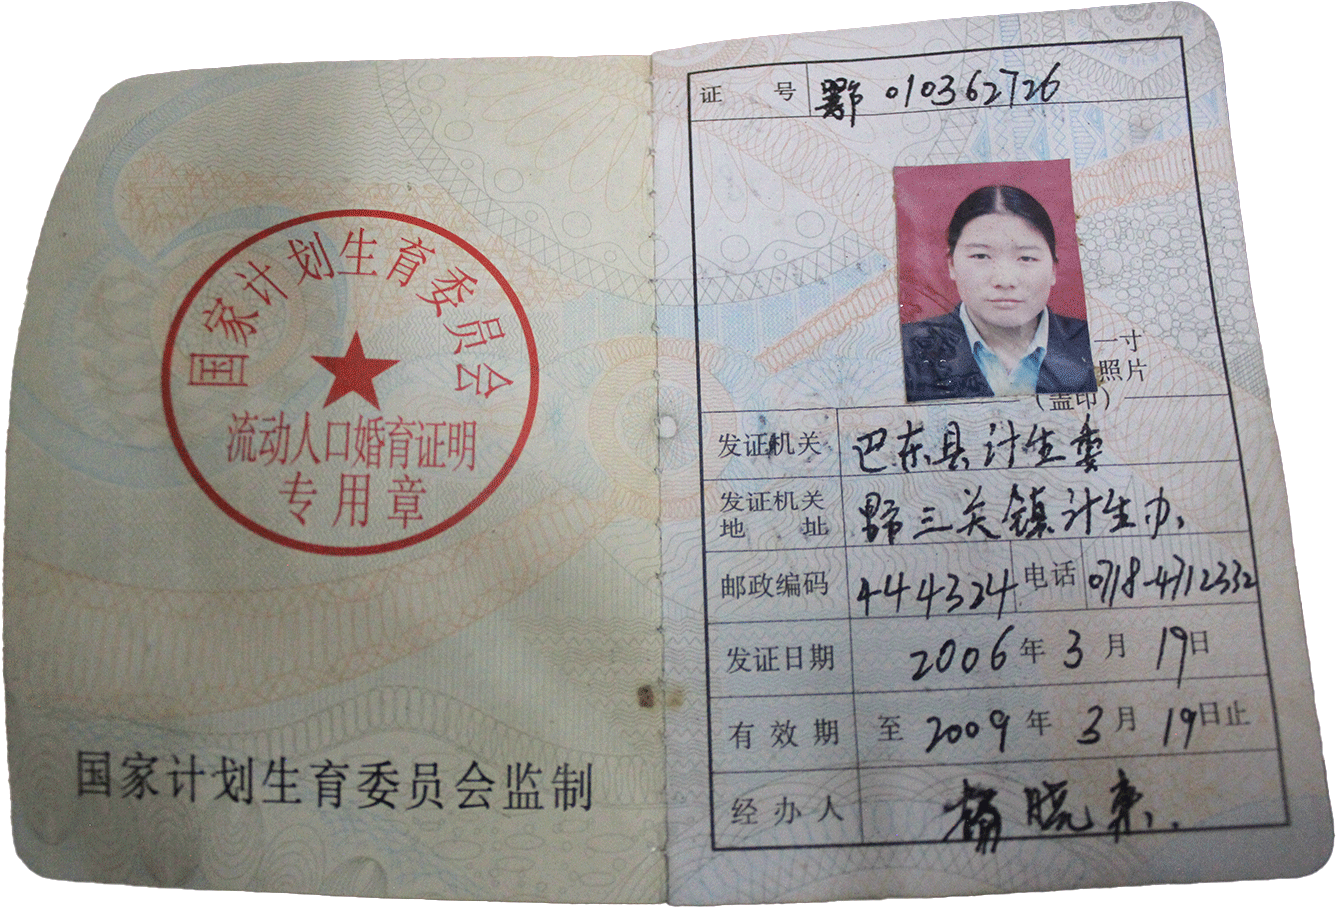 国家计划生育委员会
流动人口婚育证明
专用章
国家计划生育委员会监制
证 号 鄂 010362726
一寸
照片
(盖印)
发证机关 巴东县计生委
发证机关
地 址 野三关镇计生办
邮政编码 444324 电话 0718-4712332
发证日期 2006年3月19日
有效期 至2009年3月19日止
经办人 杨晓东